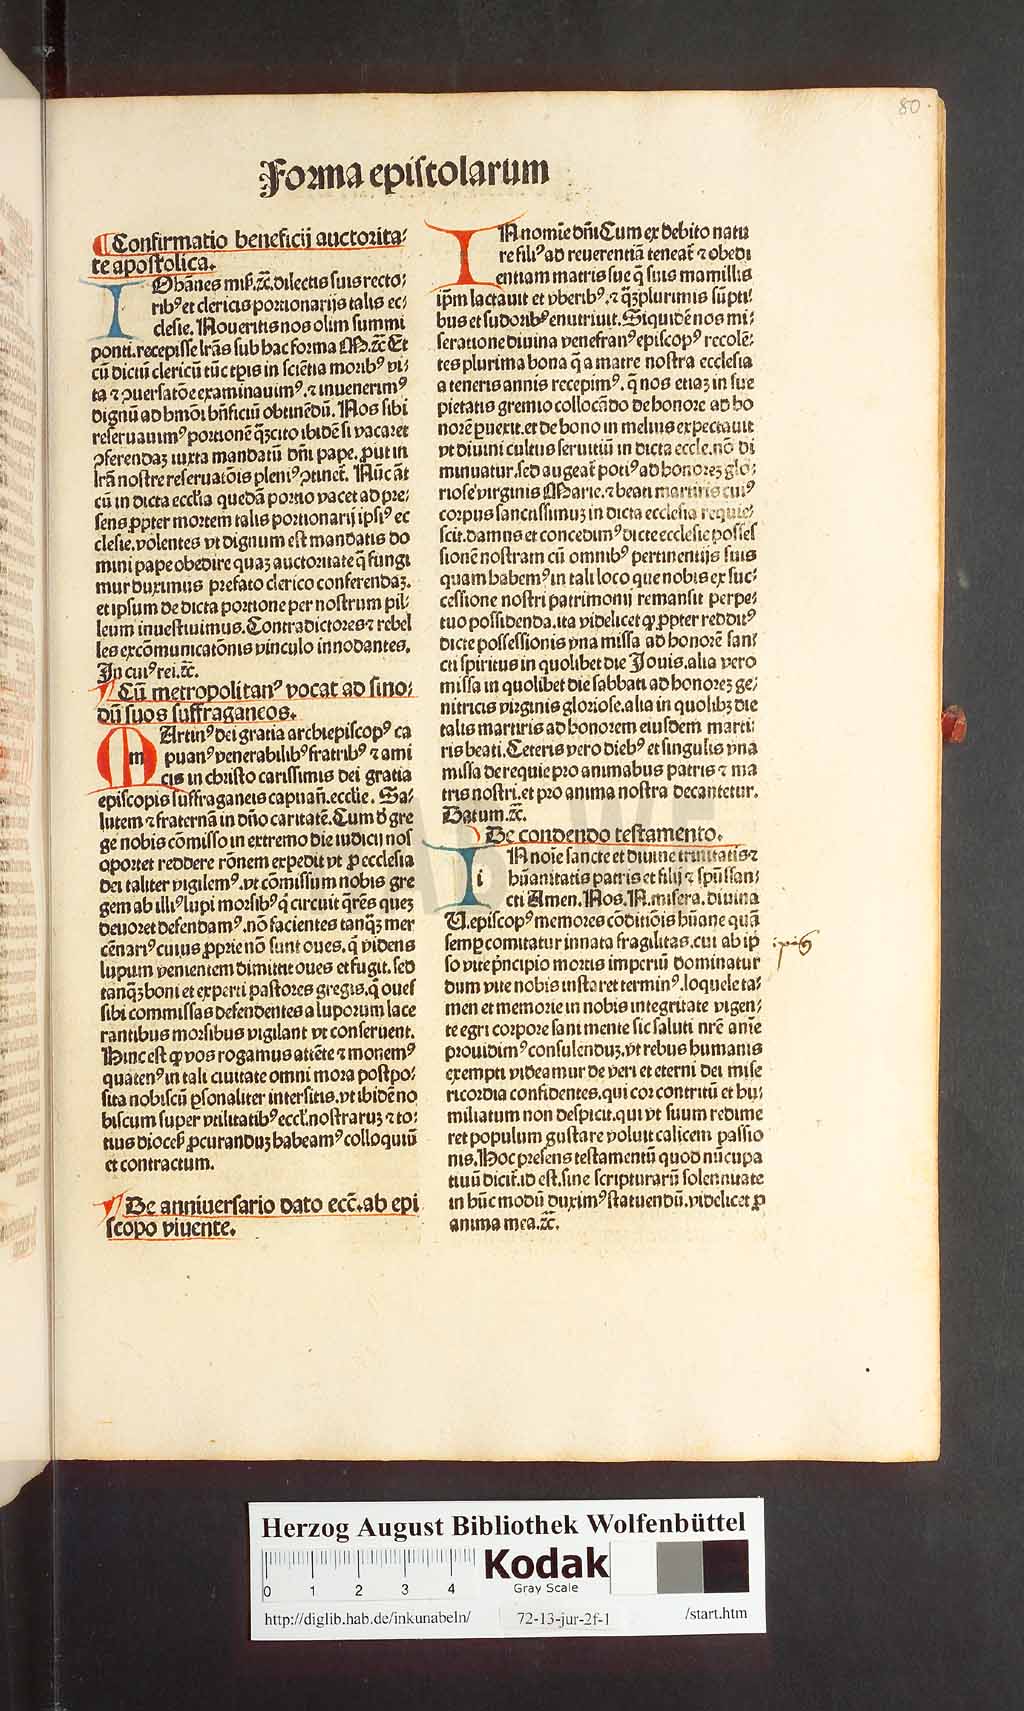 80.
Forma epistolarum
¶ Confirmatio beneficij auctorita⸗
te apostolica.
IOhānes miẜ.ꝛc̄.dilectis suis recto⸗
rib⁹ et clericis portionarijs talis ec⸗
clesie. Noueritis nos olim summi
ponti.recepisse lrās sub hac forma N.ꝛc̄ Et
cū dictū clericū tūc tp̄is in sciētia morib⁹ vi⸗
ta ⁊ ꝯuersatōe examinauim⁹.⁊ inuenerim⁹
dignū ad hmōi bn̄ficiū obtinēdū. Nos sibi
reseruauim⁹ portionē qͣꝫcito ibidē si vacaret
ꝯferendaꝫ iuxta mandatū dn̄i pape.ꝓut in
lrā nostre reseruatōis pleni⁹ ꝯtinet̄. Nūc āt
cū in dicta ecclīa quedā portio vacet ad pre⸗
sens ꝓpter mortem talis portionarij ipsi⁹ ec
clesie.volentes vt dignum est mandatis do
mini pape obedire quaꝫ auctoritate q̄ fungi
mur duximus prefato clerico conferendaꝫ.
et ipsum de dicta portione per nostrum pil⸗
leum inuestiuimus.Contradictores ⁊ rebel
les excōmunicatōnis vinculo innodantes.
In cui⁹ rei.ꝛc̄.
¶ Cū metropolitan⁹ vocat ad sino⸗
dū suos suffraganeos.
m
MArtin⁹ dei gratia archiepiscop⁹ ca
puan⁹ venerabilib⁹ fratrib⁹ ⁊ ami
cis in christo carissimis dei gratia
episcopis suffraganeis capuan̄.ecclie. Sa⸗
lutem ⁊ fraternā in dn̄o caritatē.Cum d̓ gre
ge nobis cōmisso in extremo die iudicij nos
oportet reddere rōnem expedit vt ꝓ ecclesia
dei taliter vigilem⁹.vt cōmissum nobis gre
gem ab illi⁹ lupi morsib⁹ q̄ circuit q̄rēs queꝫ
deuoret defendam⁹.nō facientes tanqͣꝫ mer
cēnari⁹ cuius ꝓprie nō sunt oues.q̄ videns
lupum venientem dimittit oues et fugit.sed
tanqͣꝫ boni et experti pastores gregis.q̄ oues
sibi commissas defendentes a luporum lace
rantibus morsibus vigilant vt conseruent.
Hinc est ꝙ vos rogamus attēte ⁊ monem⁹
quaten⁹ in tali ciuitate omni mora postpo⸗
sita nobiscū ꝑsonaliter intersitis.vt ibidē no
biscum super vtilitatib⁹ eccl̄.nostraruꝫ ⁊ to⸗
tius dioceẜ ꝓcuranduꝫ habeam⁹ colloquiū
et contractum.
¶ De anniuersario dato ecc̄.ab epi
scopo viuente.
IN nomīe dn̄i Cum ex debito natu
re fili⁹ ad reuerentiā teneat̄ ⁊ obedi
entiam matris sue q̄ suis mamillis
ip̄m lactauit et vberib⁹.⁊ qͣꝫplurimis sūpti⸗
bus et sudorib⁹ enutriuit.Siquidē nos mi⸗
seratione diuina venefran⁹ episcop⁹ recolē⸗
tes plurima bona q̄ a matre nostra ecclesia
a teneris annis recepim⁹.q̄ nos etiaꝫ in sue
pietatis gremio collocādo de honore ad ho
norē ꝓuexit.et de bono in melius expectauit
vt diuini cultus seruitiū in dicta eccle.nō di
minuatur.sed augeat̄ poti⁹ ad honoreꝫ glo⸗
riose virginis Marie.⁊ beati martiris cui⁹
corpus sanctissimuꝫ in dicta ecclesia requie⸗
scit.damus et concedim⁹ dicte ecclesie posses
sionē nostram cū omnib⁹ pertinentijs suis
quam habem⁹ in tali loco que nobis ex suc⸗
cessione nostri patrimonij remansit perpe⸗
tuo possidenda.ita videlicet ꝙ ꝓpter reddit⁹
dicte possessionis vna missa ad honorē san⸗
cti spiritus in quolibet die Jouis.alia vero
missa in quolibet die sabbati ad honoreꝫ ge⸗
nitricis virginis gloriose.alia in quolibꝫ die
talis martiris ad honorem eiusdem marti⸗
ris beati.Ceteris vero dieb⁹ et singulis vna
missa de requie pro animabus patris ⁊ ma
tris nostri.et pro anima nostra decantetur.
Datum.ꝛc̄.
De condendo testamento.
i
IN noīe sancte et diuine trinitatis ⁊
hūanitatis patris et filij ⁊ spūssan⸗
cti Amen. Nos.N.misera.diuina
V.episcop⁹ memores cōditiōis hūane quā
semꝑ comitatur innata fragilitas.cui ab ip̄
so vite pͥncipio mortis imperiū dominatur
dum vite nobis instaret termin⁹.loquele ta⸗
men et memorie in nobis integritate vigen⸗
te egri corpore sani mente sic saluti nrē anīe
prouidim⁹ consulenduꝫ.vt rebus humanis
exempti videamur de veri et eterni dei mise
ricordia confidentes.qui cor contritū et hu⸗
miliatum non despicit.qui vt suum redime
ret populum gustare voluit calicem passio
nis.Hoc presens testamentū quod nūcupa
tiuū dicit̄.id est.sine scripturarū solennitate
in hūc modū duxim⁹ statuendū.videlicet ꝓ
anima mea.ꝛc̄.
Herzog August Bibliothek Wolfenbüttel
0 1 2 3 4
Kodak
Gray Scale
http://diglib.hab.de/inkunabeln/ 72-13-jur-2f-1 /start.htm